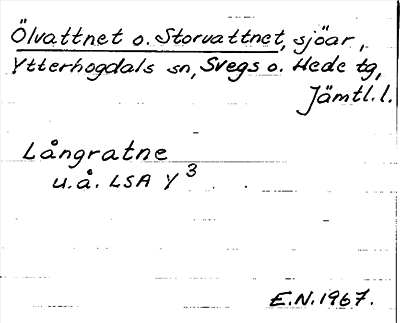 Ölvattnet o. Storvattnet, sjöar,
Ytterhogdals sn, Svegs o. Hede tg,
Jämtl.l.
Långratne
u.å. LSA Y³
E.N.1967.